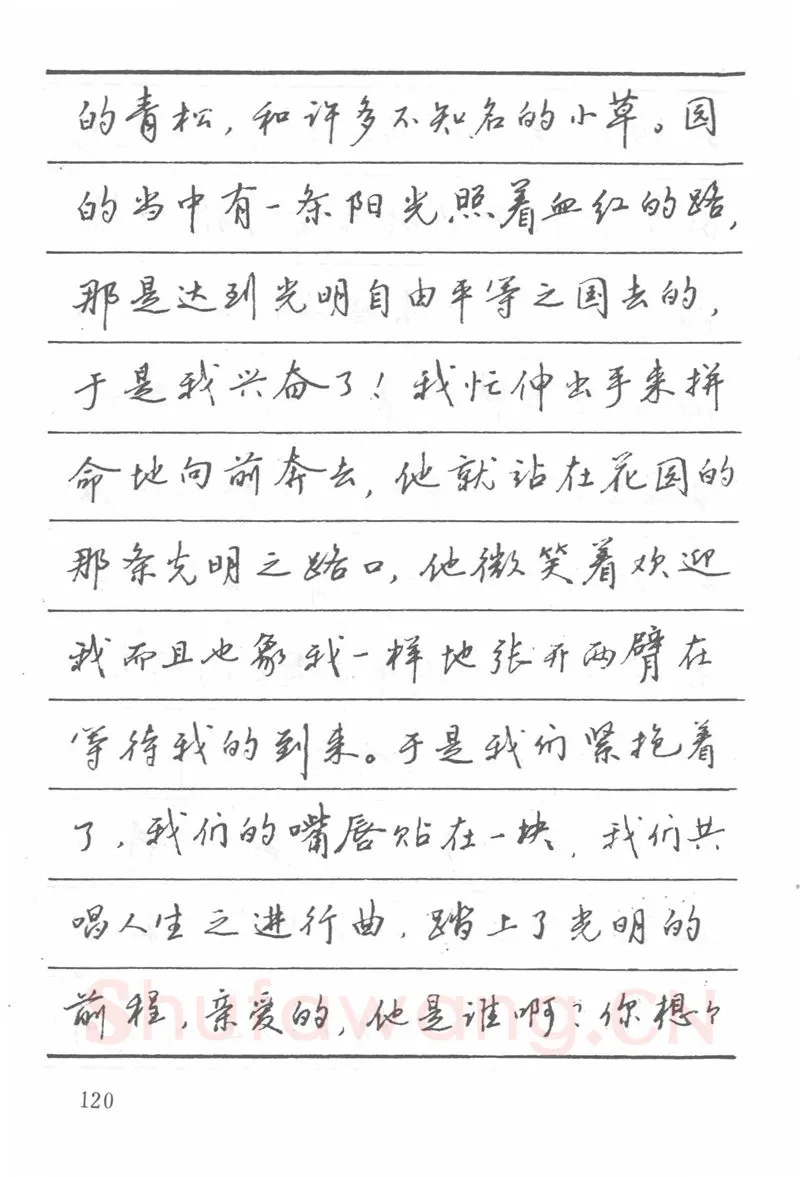 的青松，和许多不知名的小草。园
的当中有一条阳光照着血红的路，
那是达到光明自由平等之国去的，
于是我兴奋了！我忙伸出手来拼
命地向前奔去，他就站在花园的
那条光明之路口，他微笑着欢迎
我而且也象我一样地张开两臂在
等待我的到来。于是我们紧抱着
了，我们的嘴唇贴在一块，我们共
唱人生之进行曲，踏上了光明的
前程，亲爱的，他是谁啊？你想？
Shufawang.CN
120